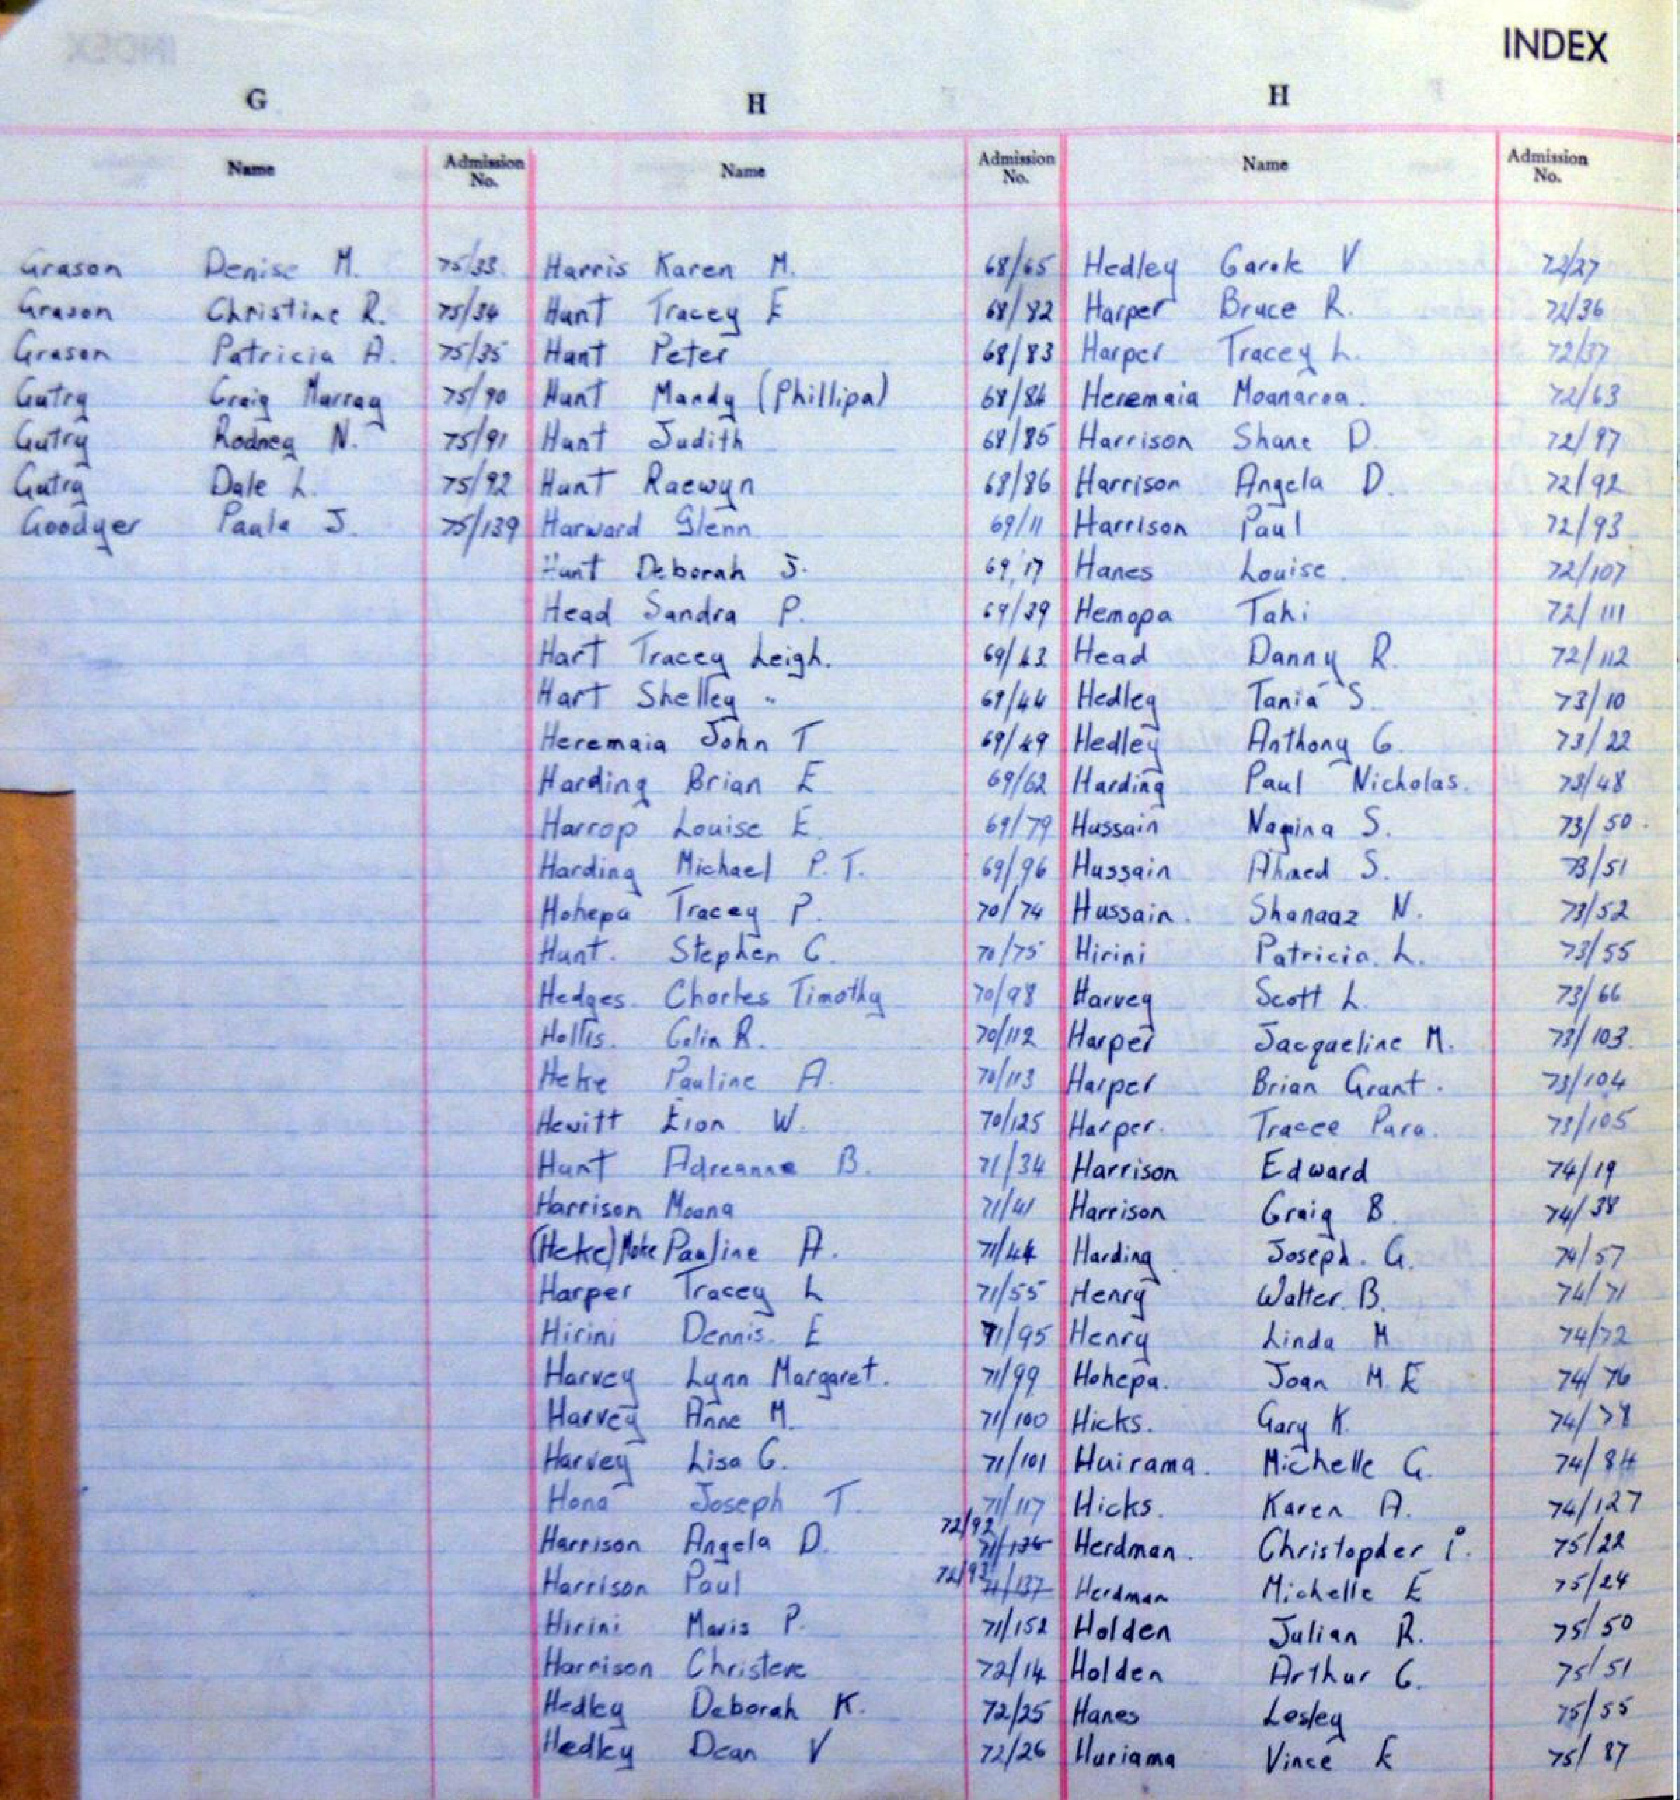 INDEX
G
Name Admission No.
Grason Denise M. 75/33
Grason Christine R. 75/34
Grason Patricia A. 75/35
Gutry Craig Murray 75/90
Gutry Rodney N. 75/91
Gutry Dale L. 75/92
Goodyer Paula J. 75/139
H
Name Admission No.
Harris Karen M. 68/65
Hunt Tracey E 68/82
Hunt Peter 68/83
Hunt Mandy (Phillipa) 68/84
Hunt Judith 68/85
Hunt Raewyn 68/86
Harward Glenn 69/11
Hunt Deborah J. 69/17
Head Sandra P. 69/39
Hart Tracey Leigh. 69/43
Hart Shelley " 69/44
Heremaia John T 69/49
Harding Brian E 69/62
Harrop Louise E. 69/79
Harding Michael P.T. 69/96
Hohepa Tracey P. 70/74
Hunt. Stephen C. 70/75
Hedges. Charles Timothy 70/98
Hollis. Colin R. 70/112
Heke Pauline A. 70/113
Hewitt Eion W. 70/125
Hunt Adreanne B. 71/34
Harrison Moana 71/41
(Heke) Moke Pauline A. 71/44
Harper Tracey L 71/55
Hirini Dennis. E 71/95
Harvey Lynn Margaret. 71/99
Harvey Anne M. 71/100
Harvey Lisa G. 71/101
Hona Joseph T. 71/117
Harrison Angela D. 72/92 71/136
Harrison Paul 72/93 71/137
Hirini Mavis P. 71/152
Harrison Christere 72/14
Hedley Deborah K. 72/25
Hedley Dean V 72/26
H
Name Admission No.
Hedley Garok V 72/27
Harper Bruce R. 72/36
Harper Tracey L. 72/37
Heremaia Moanaroa. 72/63
Harrison Shane D. 72/87
Harrison Angela D. 72/92
Harrison Paul 72/93
Hanes Louise. 72/107
Hemopa Tahi 72/111
Head Danny R. 72/112
Hedley Tania S. 73/10
Hedley Anthony G. 73/22
Harding Paul Nicholas. 73/48
Hussain Nagina S. 73/50.
Hussain Ahmed S. 73/51
Hussain. Shanaaz N. 73/52
Hirini Patricia. L. 73/55
Harvey Scott L. 73/66
Harper Jacqueline M. 73/103.
Harper Brian Grant. 73/104
Harper. Tracee Para. 73/105
Harrison Edward 74/19
Harrison Craig B. 74/38
Harding Joseph. G. 74/57
Henry Walter. B. 74/71
Henry Linda M 74/72
Hohepa. Joan M.E 74/76
Hicks. Gary K. 74/78
Huirama. Michelle G. 74/84
Hicks. Karen A. 74/127
Herdman. Christopder i. 75/22
Herdman Michelle E 75/24
Holden Julian R. 75/50
Holden Arthur G. 75/51
Hanes Lesley 75/55
Huriama Vince E 75/87